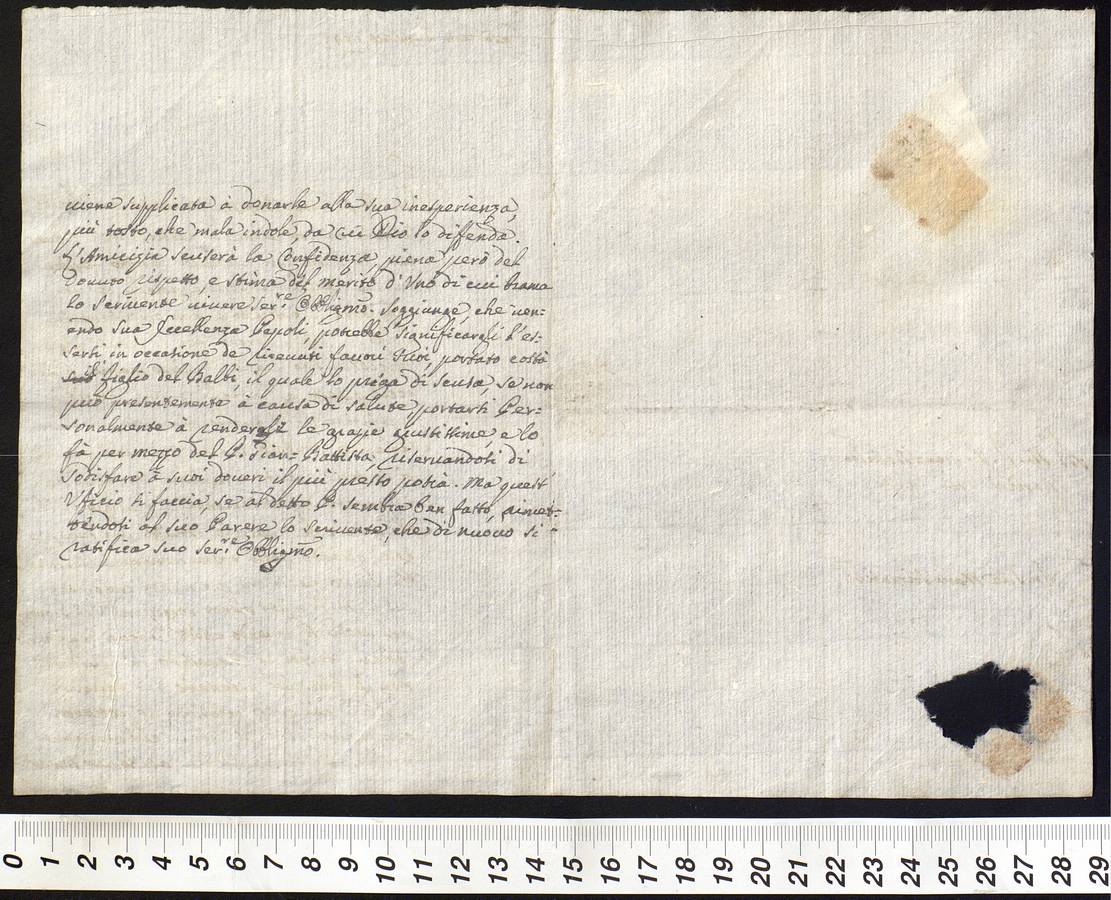 uiene supplicata à donarle alla sua inesperienza,
più tosto, che mala indole, da cui Dio lo difenda.
L'Amicizia scuserà la Confidenza, piena però del
douuto rispetto, e stima del merito d'Uno di cui brama
lo scriuente uiuere ser.re Obbligmo. Soggiunge, che uen=
endo sua Eccellenza Pepoli, potrebbe significargli l'es=
serti in occasione de riceuuti fauori suoi, portato costà
figlio del Balbi, il quale lo prega di scusa, se non
può presentemente à causa di salute, portarsi Per=
sonalmente à rendergli le grazie giustissime, e lo
fà per mezzo del P. Gian=Battista, riseruandosi di
sodisfare à suoi doueri il più presto potrà. Ma quest'
Uficio si faccia, se al detto P. sembra ben fatto, rimet=
tendosi al suo Parere lo scriuente, che di nuouo si
ratifica suo ser.re Obbligmo.
0 1 2 3 4 5 6 7 8 9 10 11 12 13 14 15 16 17 18 19 20 21 22 23 24 25 26 27 28 29